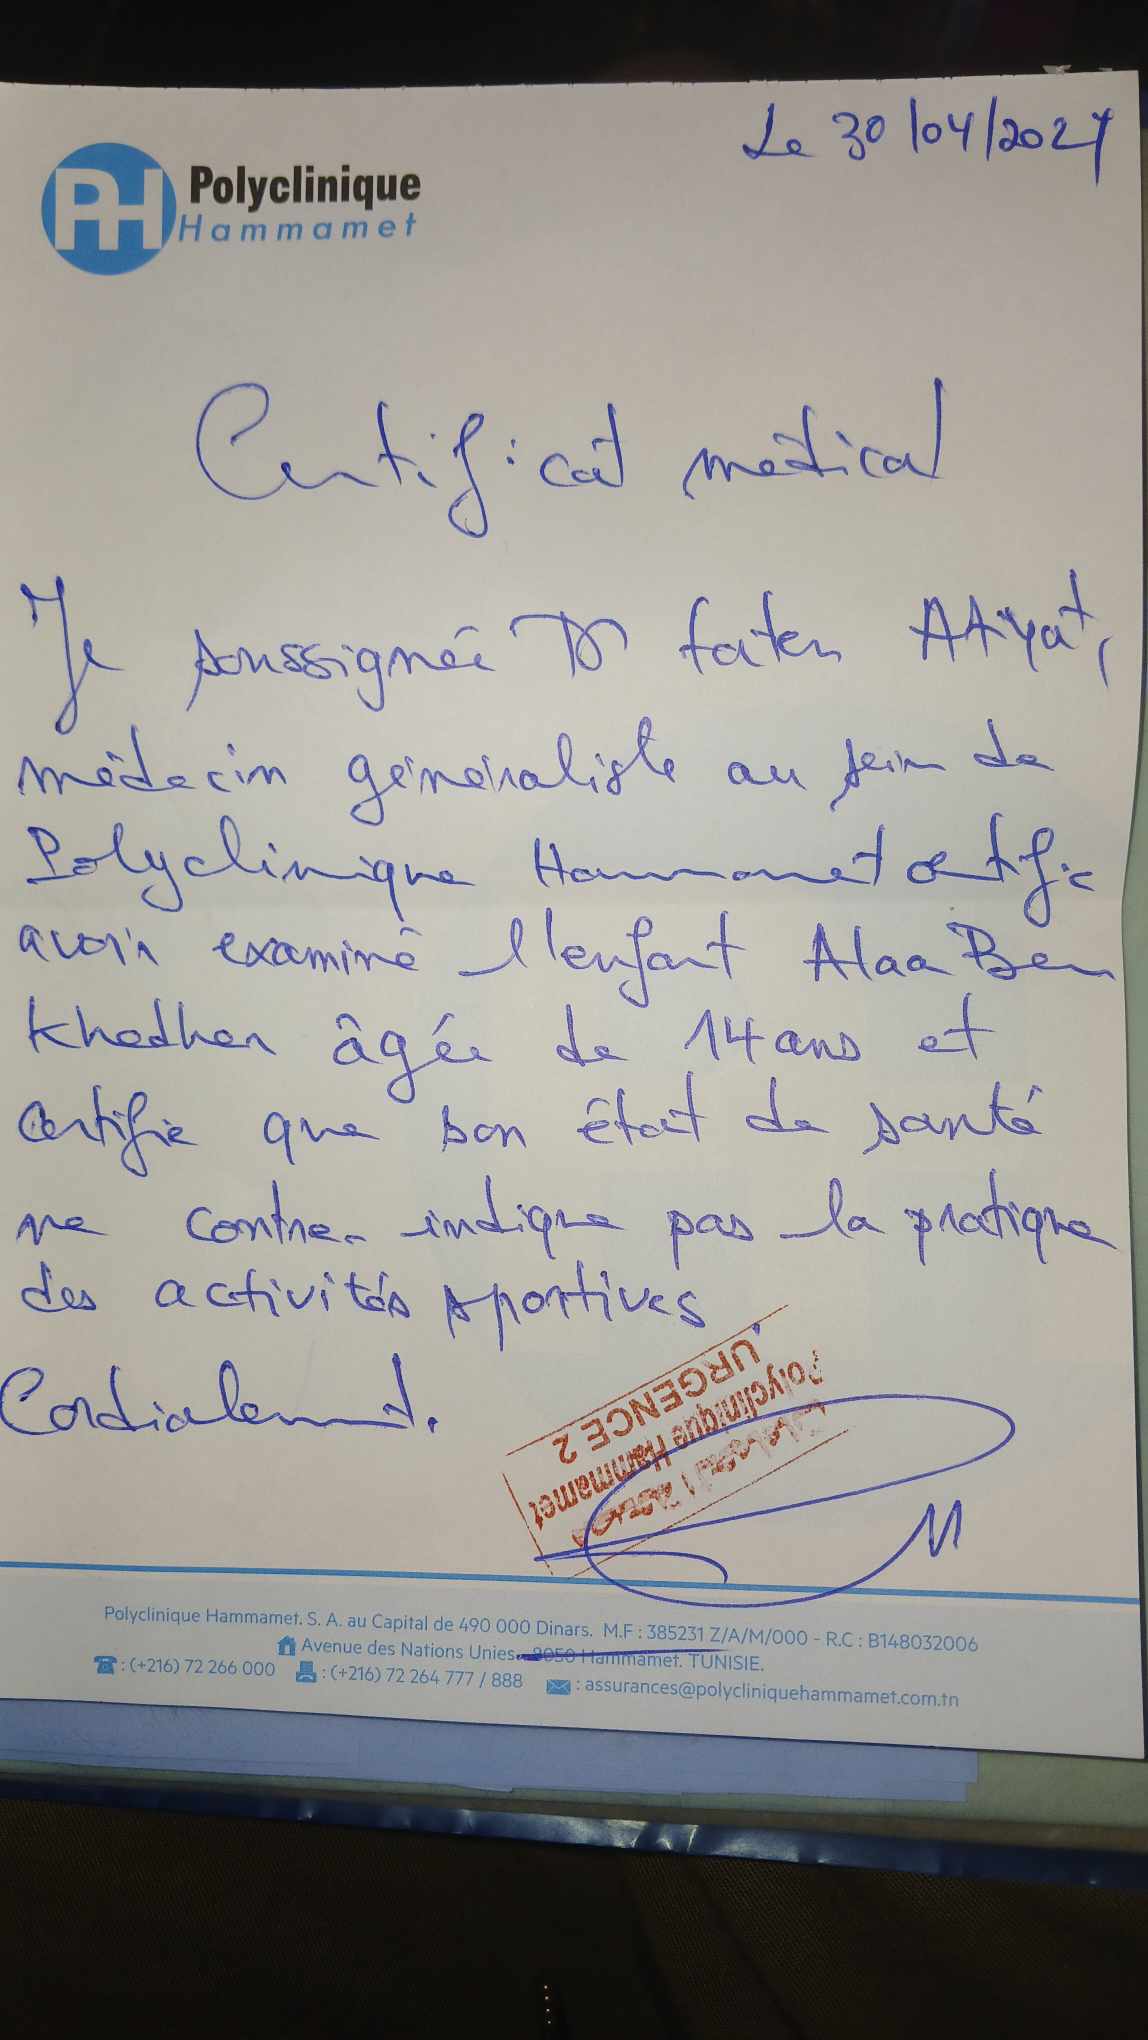 Le 30/04/2024
PH Polyclinique
Hammamet
Certificat médical
Je soussignée Dr faten Atiyat,
médecin généraliste au sein de
Polyclinique Hammamet certifie
avoir examiné l'enfant Alaa Ben
Khedher âgée de 14 ans et
certifie que son état de santé
ne contre-indique pas la pratique
des activités sportives.
Cordialement.
URGENCE 2
Polyclinique Hammamet
Polyclinique Hammamet. S. A. au Capital de 490 000 Dinars. M.F : 385231 Z/A/M/000 - R.C : B148032006
Avenue des Nations Unies 8050 Hammamet. TUNISIE.
: (+216) 72 266 000 : (+216) 72 264 777 / 888 : assurances@polycliniquehammamet.com.tn